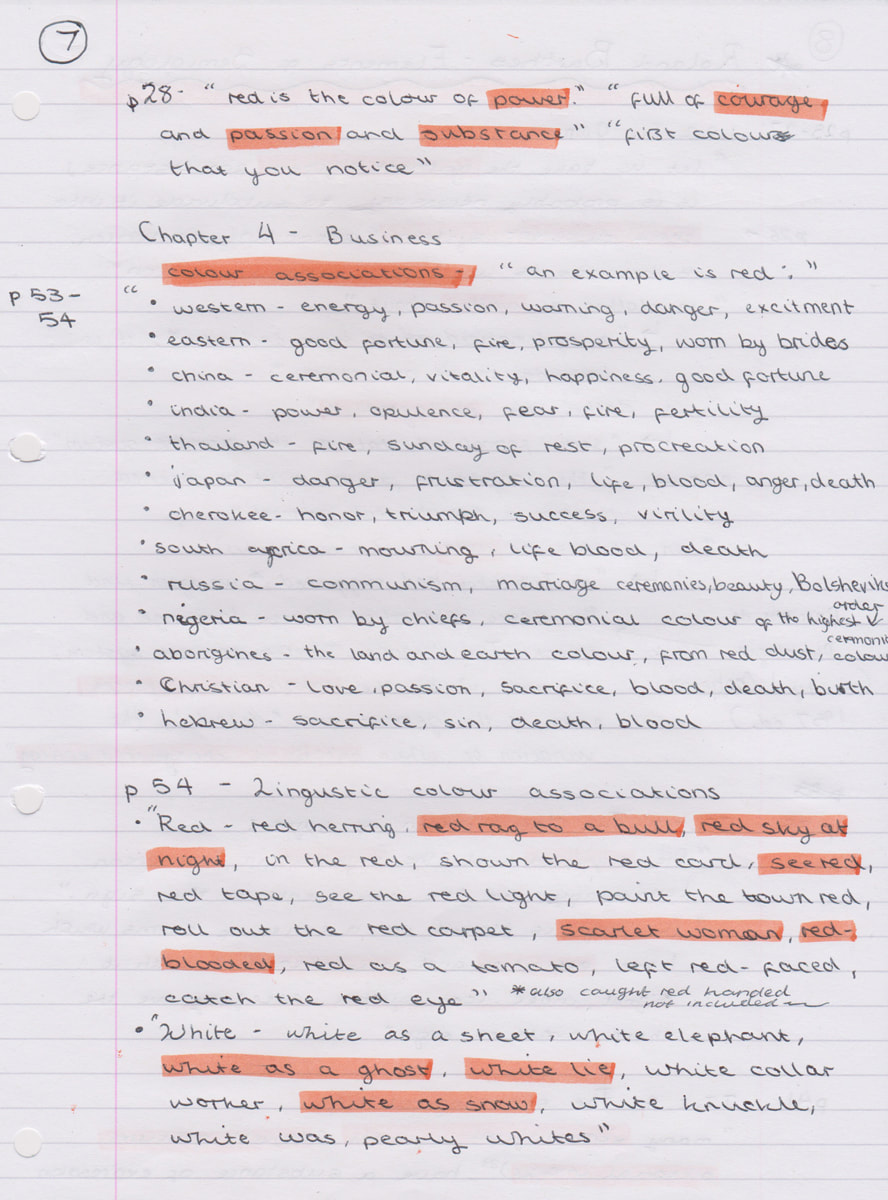 7
p28- "red is the colour of power." "full of courage
and passion and substance" "first colour
that you notice"
Chapter 4 - Business
colour associations - "an example is red:"
p 53-
54
" • western - energy, passion, warning, danger, excitment
• eastern - good fortune, fire, prosperity, worn by brides
• china - ceremonial, vitality, happiness, good fortune
• india - power, opulence, fear, fire, fertility
• thailand - fire, sunday of rest, procreation
• japan - danger, frustration, life, blood, anger, death
• cherokee - honor, triumph, success, virility
• south africa - mourning, life blood, death
• russia - communism, marriage ceremonies, beauty, Bolsheviks
• negeria - worn by chiefs, ceremonial colour of the highest order
• aborigines - the land and earth colour, from red dust, cermonial colour
• Christian - love, passion, sacrifice, blood, death, birth
• hebrew - sacrifice, sin, death, blood
p 54 - Lingustic colour associations
• "Red - red herring, red rag to a bull, red sky at
night, in the red, shown the red card, see red,
red tape, see the red light, paint the town red,
roll out the red carpet, scarlet woman, red-
blooded, red as a tomato, left red-faced,
catch the red eye" *also caught red handed
not included
• "White - white as a sheet, white elephant,
white as a ghost, white lie, white collar
worker, white as snow, white knuckle,
white was, pearly whites"